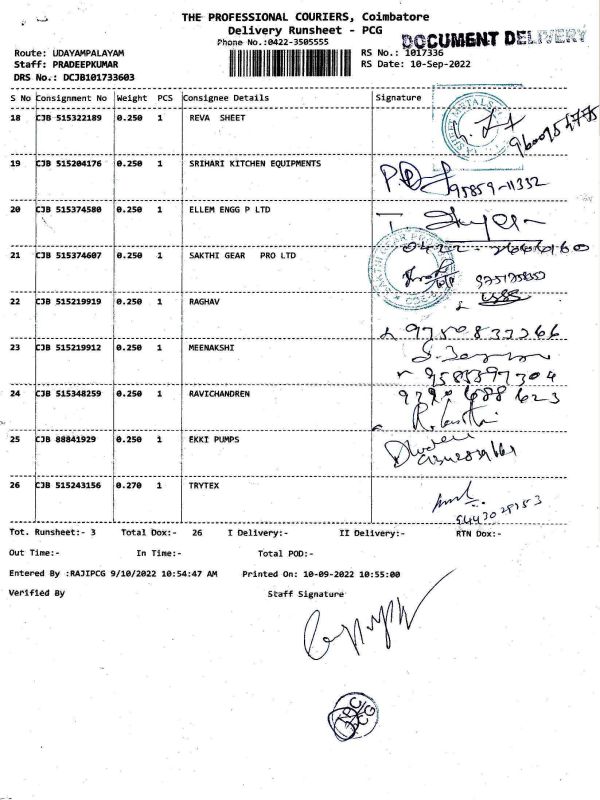 THE PROFESSIONAL COURIERS, Coimbatore
Delivery Runsheet - PCG
Phone No.:0422-3505555
DOCUMENT DELIVERY
Route: UDAYAMPALAYAM
RS No.: 1017336
Staff: PRADEEPKUMAR
RS Date: 10-Sep-2022
DRS No.: DCJB101733603
S No Consignment No Weight PCS Consignee Details Signature
18 CJB 515322189 0.250 1 REVA SHEET
19 CJB 515204176 0.250 1 SRIHARI KITCHEN EQUIPMENTS
95859-11332
20 CJB 515374580 0.250 1 ELLEM ENGG P LTD
21 CJB 515374607 0.250 1 SAKTHI GEAR PRO LTD
22 CJB 515219919 0.250 1 RAGHAV
23 CJB 515219912 0.250 1 MEENAKSHI
24 CJB 515348259 0.250 1 RAVICHANDREN
25 CJB 88841929 0.250 1 EKKI PUMPS
26 CJB 515243156 0.270 1 TRYTEX
Tot. Runsheet:- 3 Total Dox:- 26 I Delivery:- II Delivery:- RTN Dox:-
Out Time:- In Time:- Total POD:-
Entered By :RAJIPCG 9/10/2022 10:54:47 AM Printed On: 10-09-2022 10:55:00
Verified By Staff Signature